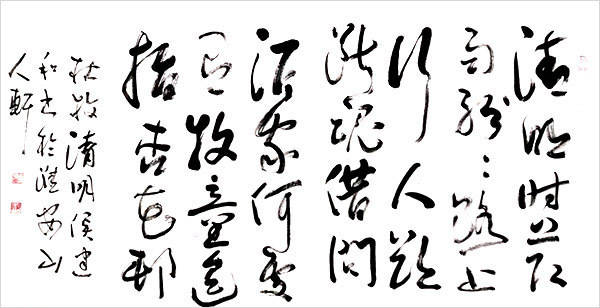 清明时节
雨紛々路上
行人欲
断魂借問
酒家何處
有牧童遥
指杏花邨
杜牧清明侯建
和书於淮安山
人軒